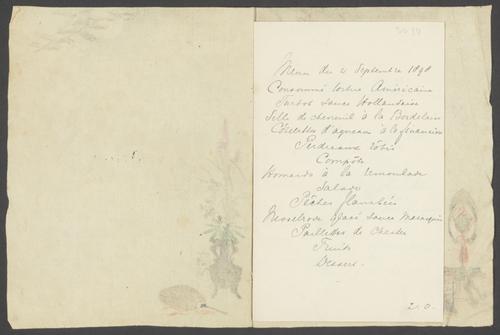 Menu du 4 Septembre 1898
Consommé tortue Américaine
Turbot sauce Hollandaise
Selle de chevreuil à la Bordelaise
Côtelettes d'agneau à la financière
Perdreaux rôtis
Compôte
Homards à la remoulade
Salade
Pêches flambées
Nesselrode glacé sauce Marasquin
Paillettes de Chester
Fruits
Dessert.